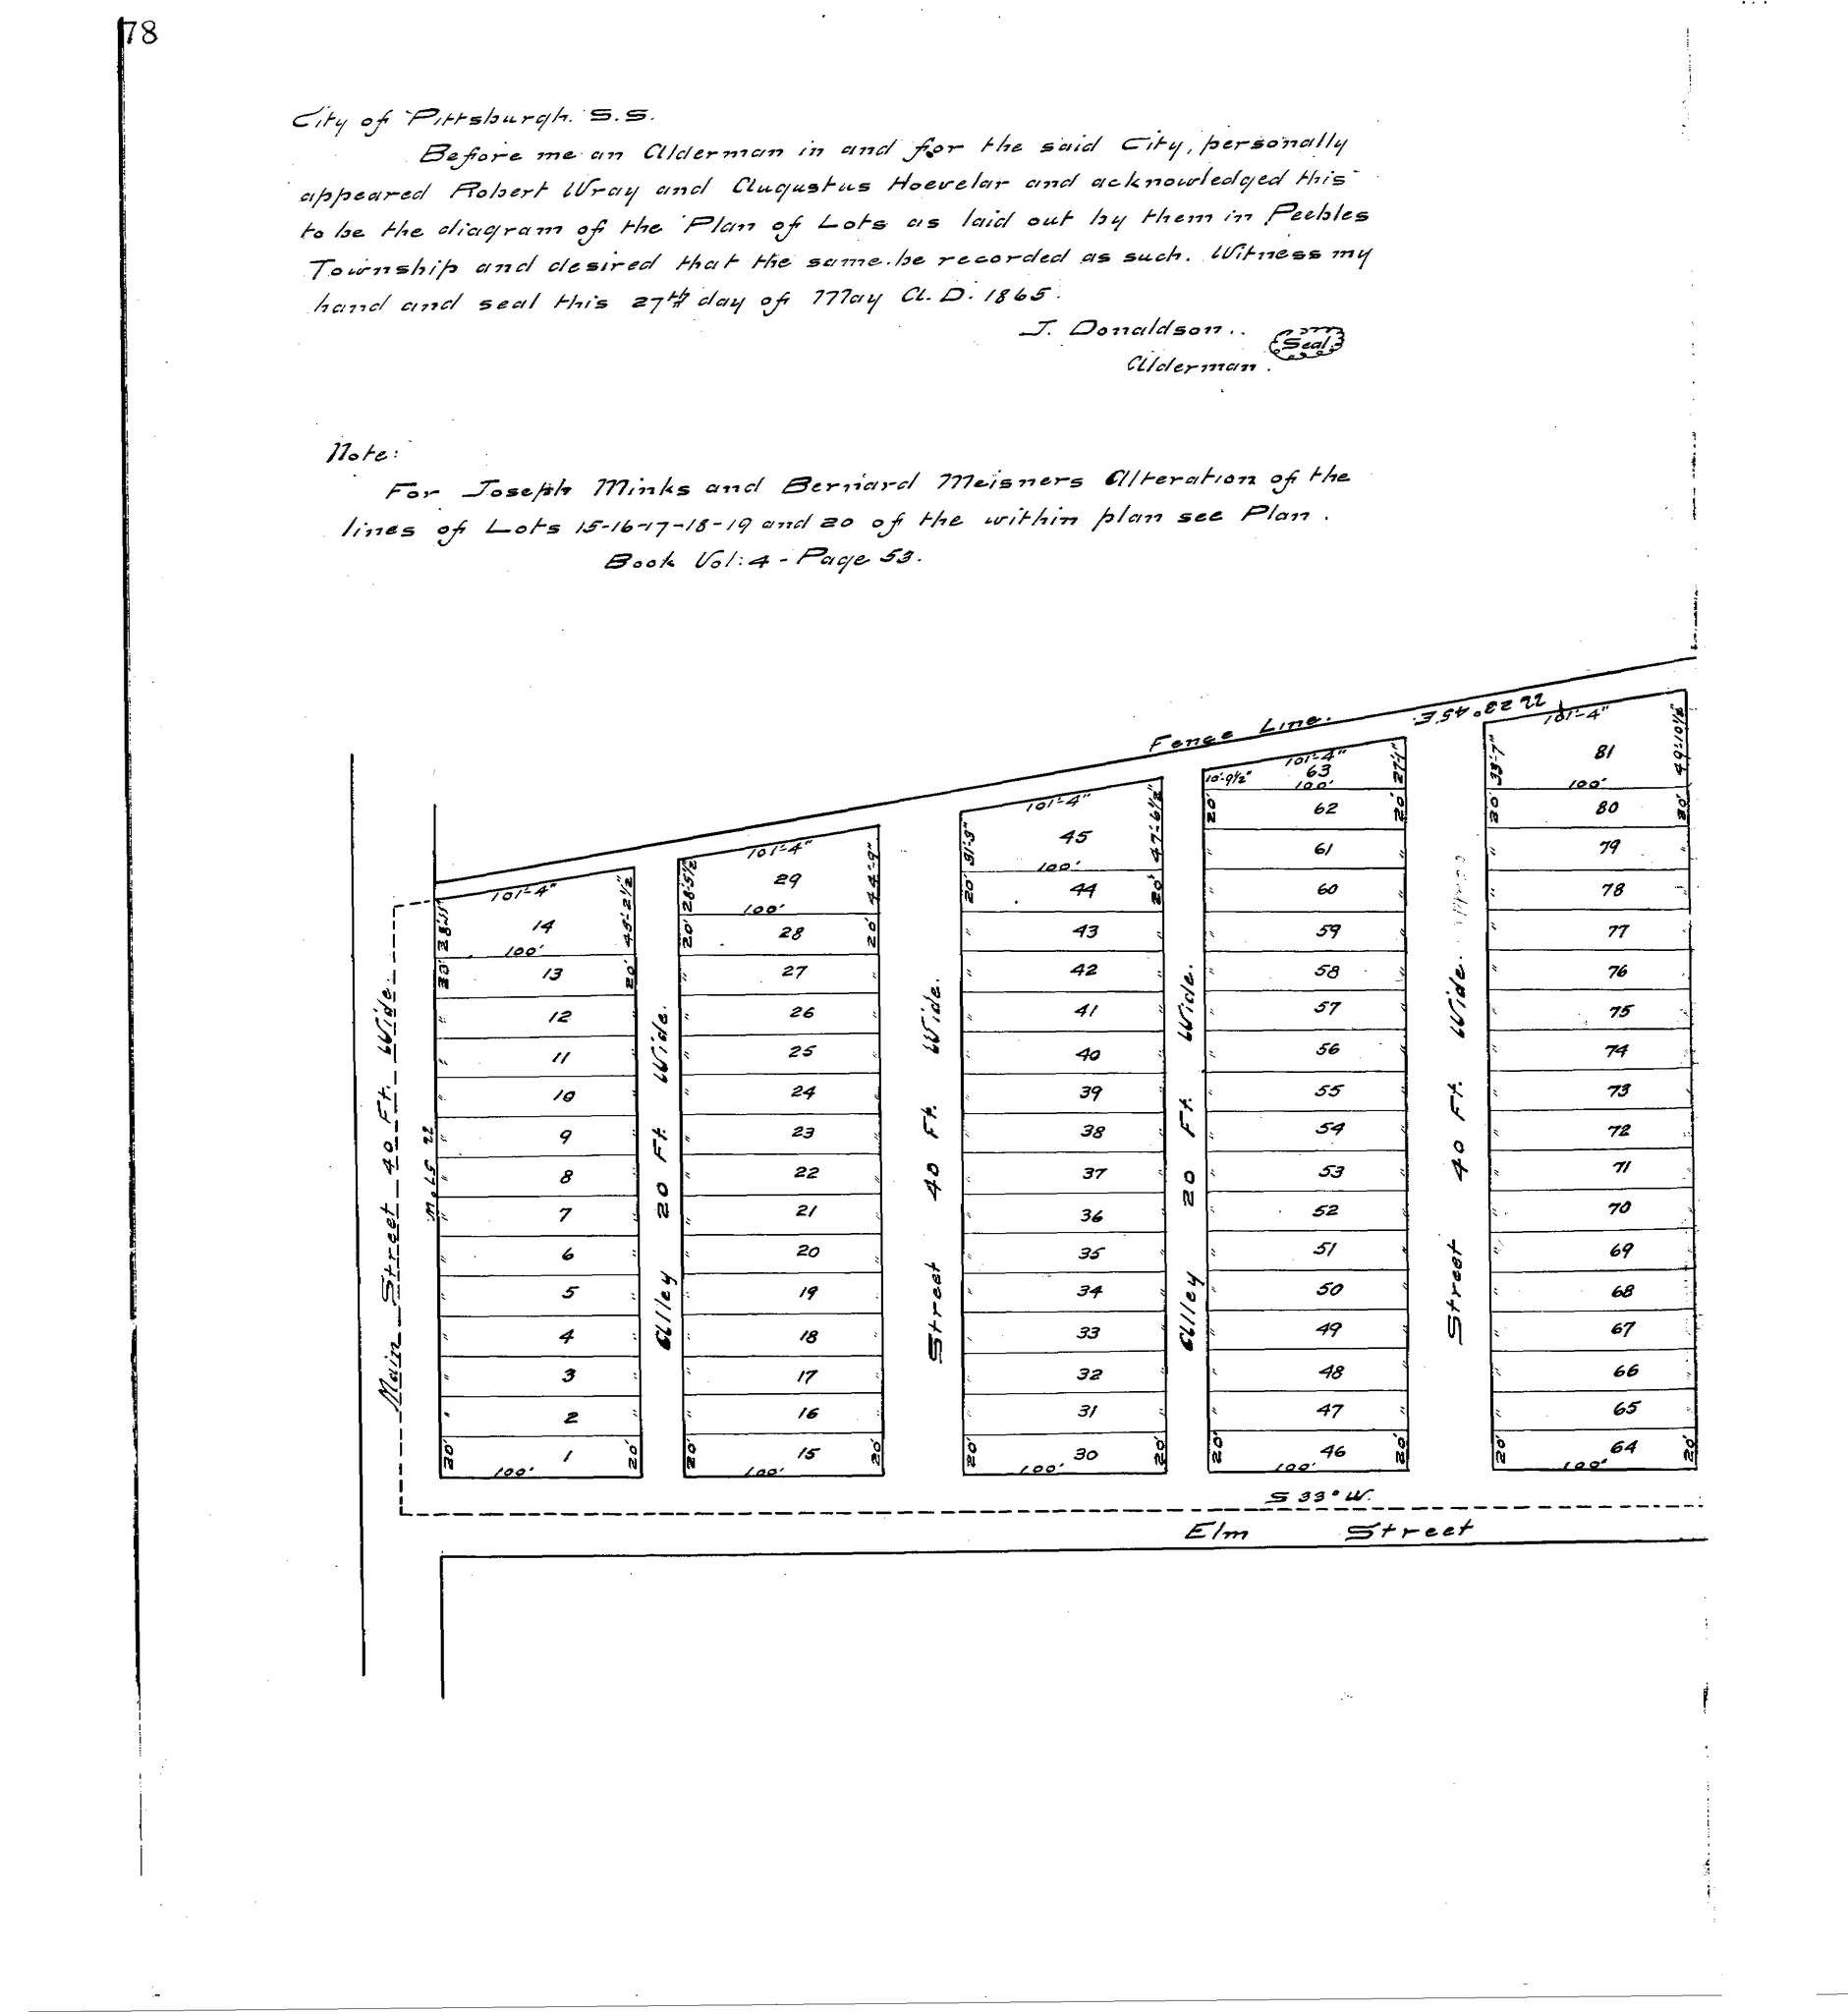 78
City of Pittsburgh. S.S.
Before me an Alderman in and for the said City, personally
appeared Robert Wray and Augustus Hoevelar and acknowledged this
to be the diagram of the Plan of Lots as laid out by them in Peebles
Township and desired that the same be recorded as such. Witness my
hand and seal this 27th day of May A.D. 1865.
J. Donaldson.
Seal
Alderman.
Note:
For Joseph Minks and Bernard Meisners Alteration of the
lines of Lots 15-16-17-18-19 and 20 of the within plan see Plan.
Book Vol: 4 - Page 53.
Fence Line. N 23° 45' E.
101'-4" 101'-4" 101'-4" 101'-4" 101'-4"
45'-2½" 28'-5½" 44'-9" 31'-3" 47'-6½" 10'-9½" 27'-1" 33'-7" 49'-10½"
14 29 45 63 81
100' 100' 100' 100' 100'
20' 20' 20' 20' 20' 20' 20' 20' 20' 20'
13 28 44 62 80
12 27 43 61 79
11 26 42 60 78
10 25 41 59 77
9 24 40 58 76
8 23 39 57 75
7 22 38 56 74
6 21 37 55 73
5 20 36 54 72
4 19 35 53 71
3 18 34 52 70
2 17 33 51 69
1 16 32 50 68
15 31 49 67
30 48 66
47 65
46 64
20' 20' 20' 20' 20' 20' 20' 20' 20' 20'
100' 100' 100' 100' 100'
Main Street 40 Ft. Wide.
N 57° W
Alley 20 Ft. Wide.
Street 40 Ft. Wide.
Alley 20 Ft. Wide.
Street 40 Ft. Wide.
S 33° W.
Elm Street